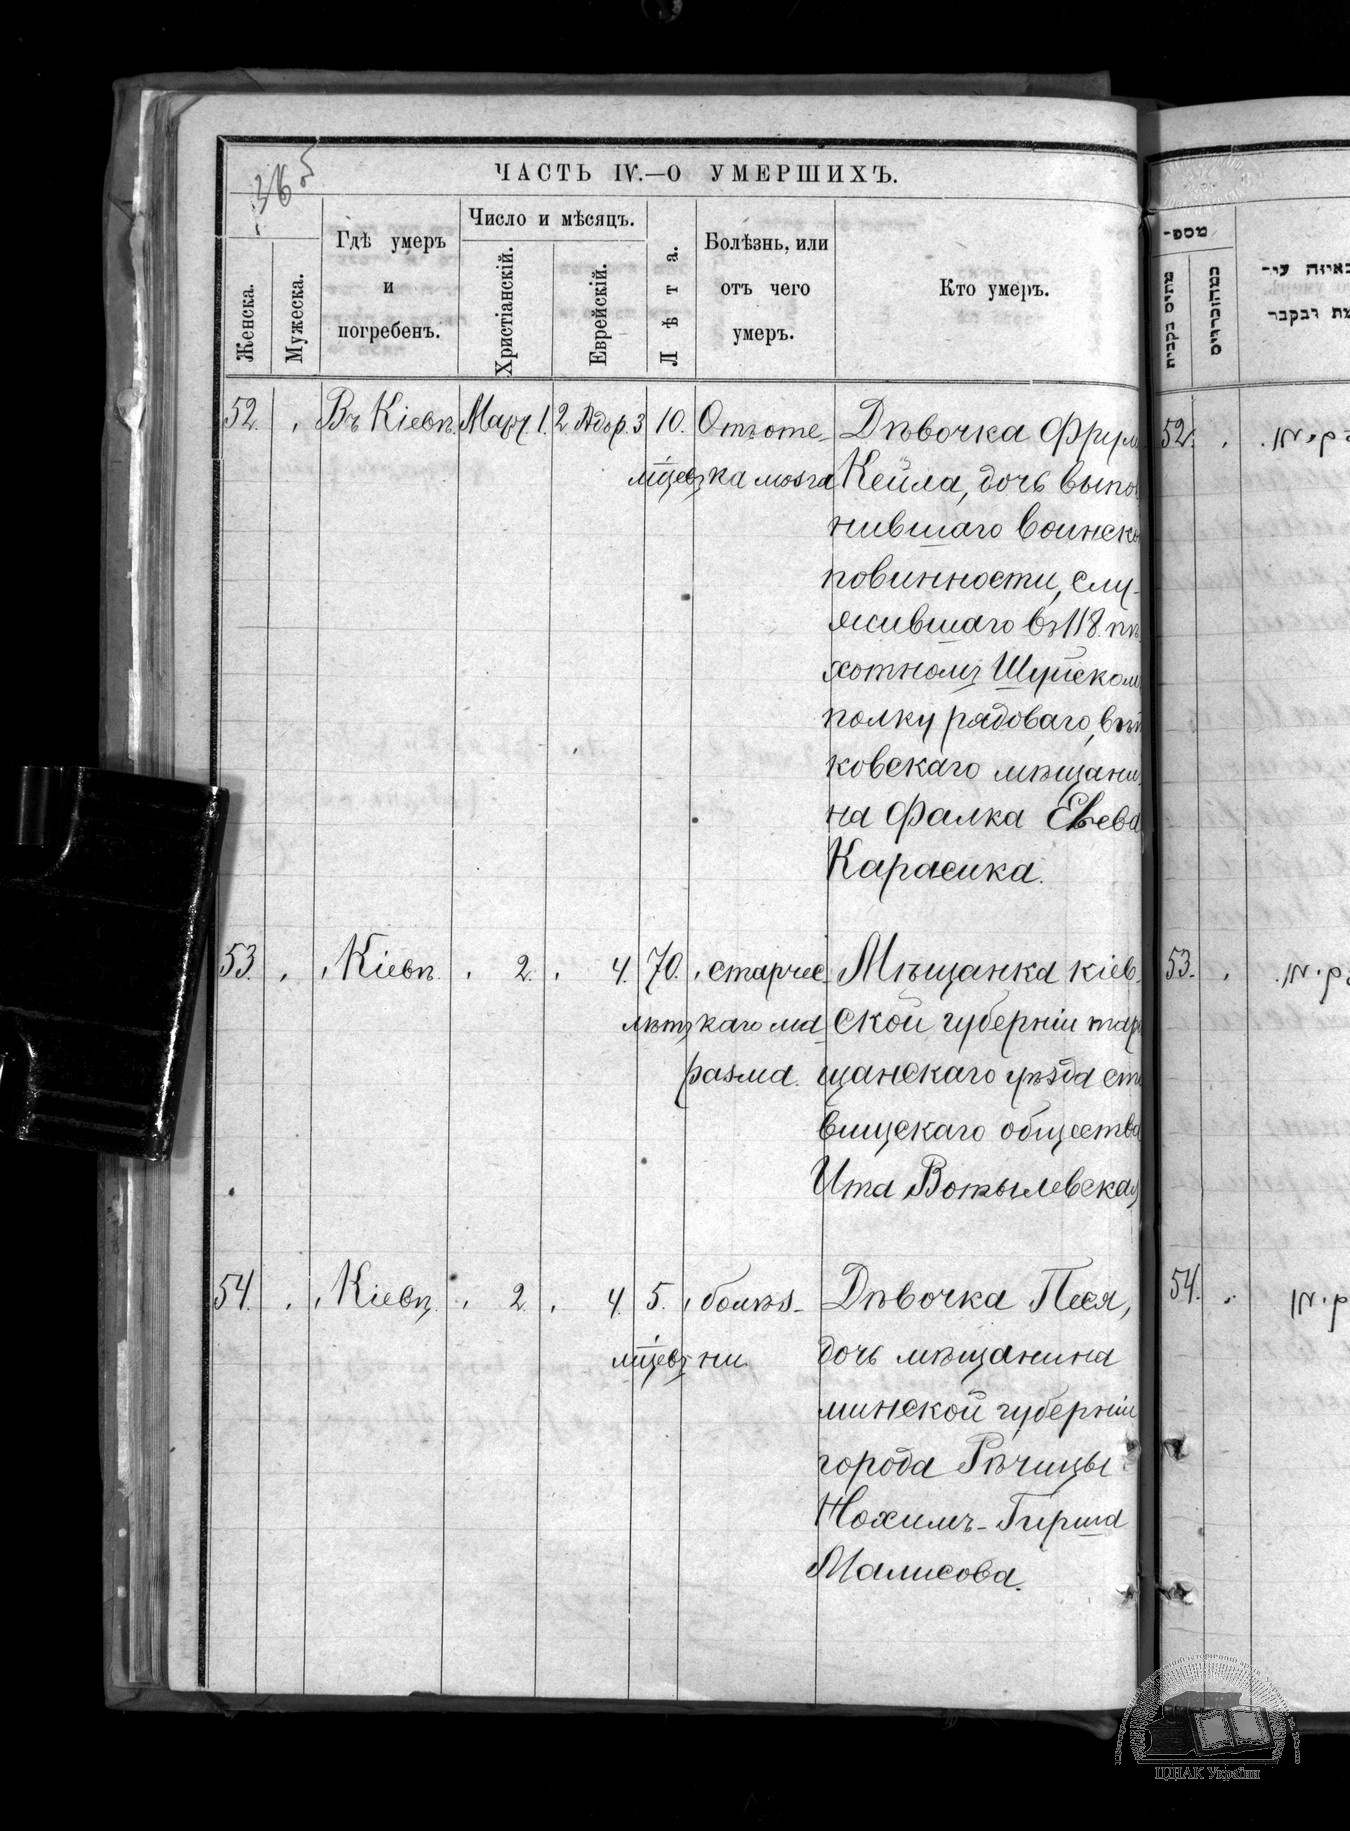 365
ЧАСТЬ IV.—О УМЕРШИХЪ.
Женска.
Мужеска.
Гдѣ умеръ
и
погребенъ.
Число и мѣсяцъ.
Христіанскій.
Еврейскій.
Лѣта.
Болѣзнь, или
отъ чего
умеръ.
Кто умеръ.
52. Въ Кіевѣ. Март. 1. 2 Адор. 3 10. Отъ оте- Дѣвочка Фрум
мѣсяц. ка мозга Кейла, дочь выпол
нившаго воинско
повинности, слу-
жившаго въ 118 пѣ
хотномъ Шуйском
полку рядоваго, вѣт
ковскаго мѣщани
на Фалка Евева
Карасика.
53. Кіевѣ. 2. 4. 70. старчес- Мѣщанка кіев-
лѣтъ каго ма- ской губерніи тара
разма. щанскаго уѣзда ста
вищскаго общества
Ита Вотылевская
54. Кіевѣ. 2. 4. 5. болѣз- Дѣвочка Песя,
мѣсяц. ни. дочь мѣщанина
минской губерніи
города Рѣчицы
Нохимъ-Гирша
Малисова.
מספ-
52.
53.
54.
ЦДІАК України